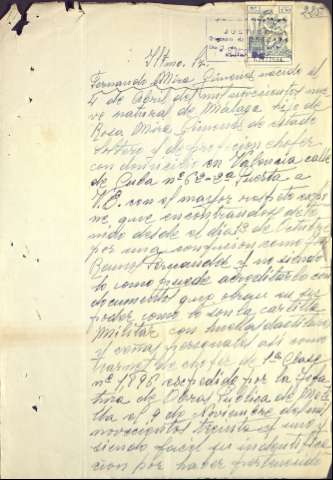 225
JUSTICIA
Iltmo. Sr.
Fernando Mira Gimenez nacido el
4 de Abril de mil novecientos nue
ve natural de Malaga hijo de
Rosa Mira Gimenez de estado
soltero y de profesion chofer
con domicilio en Valencia calle
de Cuba nº 62-2ª Puerta a
V.E. con el mayor respeto expo
ne que encontrandose dete
nido desde el dia de Octubre
por una confusion como
Fernandez y no siendo
lo como puede acreditarlo con
documentos que obran en su
poder como lo son la cartilla
Militar con huellas dactilares
y señas personales asi como
carnet de chofer de 1ª Clase
nº 1896 expedido por la Jefa
tura de Obras Publica de Meli
lla el 9 de Noviembre de mil
novecientos treinta y uno y
siendo facil su indentifica
cion por haber pertenecido